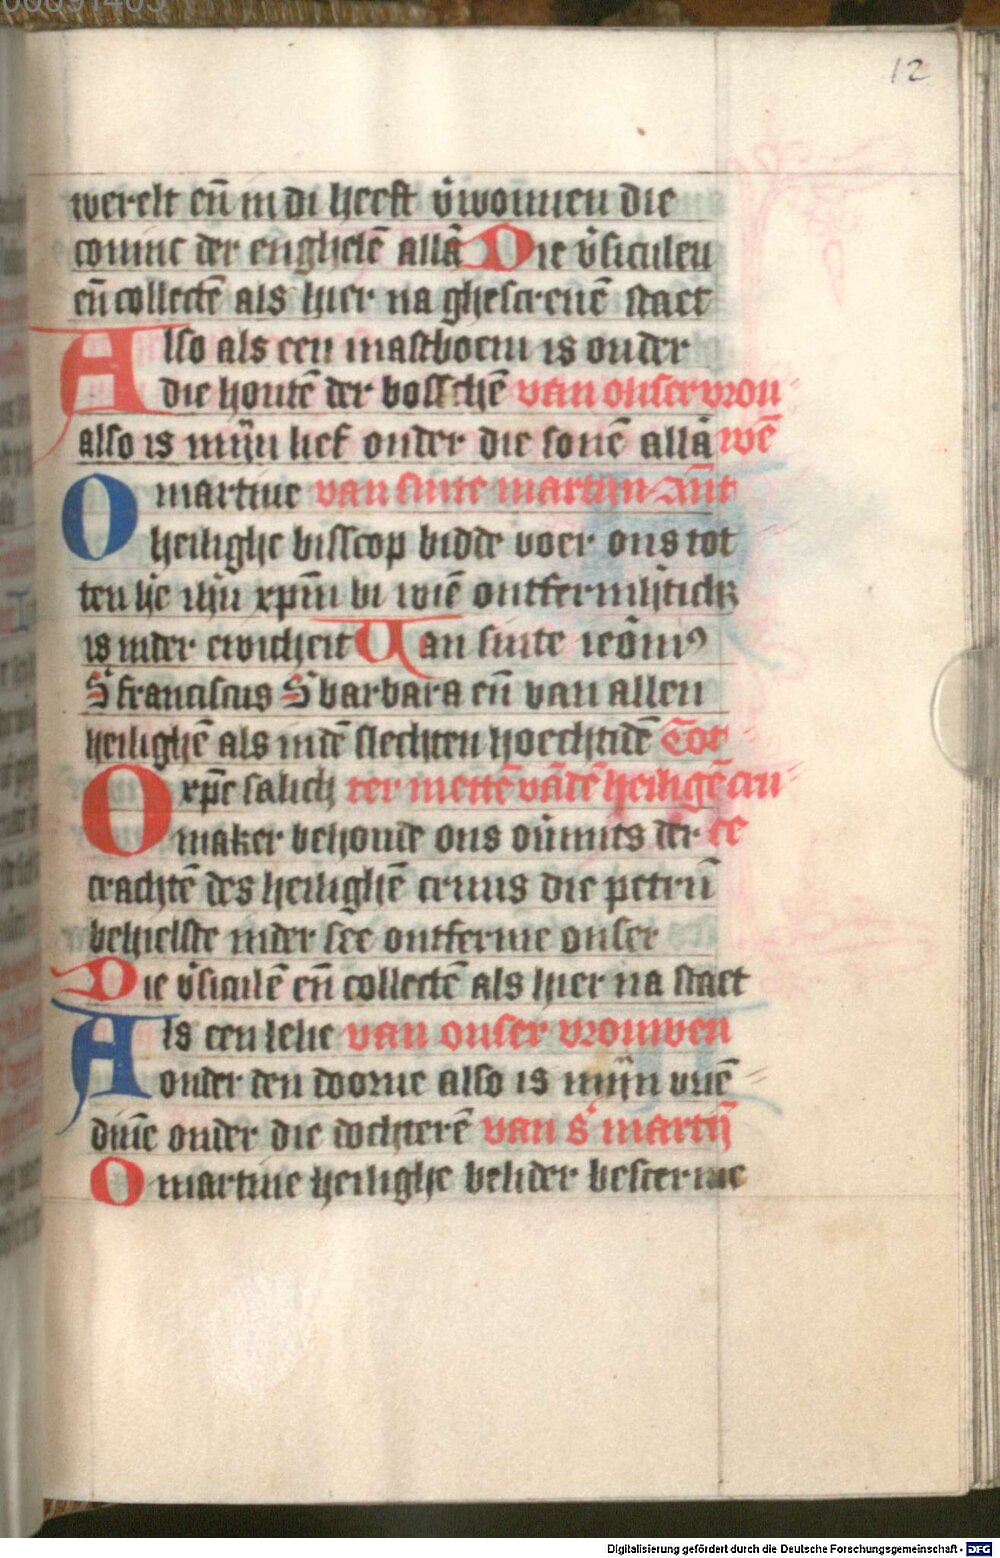 12
werelt en̄ in di heeft v̄wonnen die
coninc der enghelē allā Die v̄siculen
en̄ collectē als hier na ghescreuē staet
Also als een mastboem is onder
die houtē der bosschē van onser vrou
also is mijn lief onder die sonē allā wē
O martine van sinte martijn Ant̄
heilighe bisscop bidde voer ons tot
ten hē ihm̄ xpm̄ bi wiē ontfermhertich
is in der ewicheit Van sinte ieōimꝰ
S franciscus S barbara en̄ van allen
heilighē als in dē slechten hoechtidē Tot
O xpē salich ter mettē vādē heiligē cru
maker behoude ons ōumits der ce
crachtē des heilighē cruus die petrū
behielste in der see ontferme onser
Die v̄siculē en̄ collectē als hier na staet
Als een lelie van onser vrouwen
onder den doorne also is mijn vriē
dinē onder die dochterē van s martij̄
O martine heilighe belider bescerme
Digitalisierung gefördert durch die Deutsche Forschungsgemeinschaft - DFG